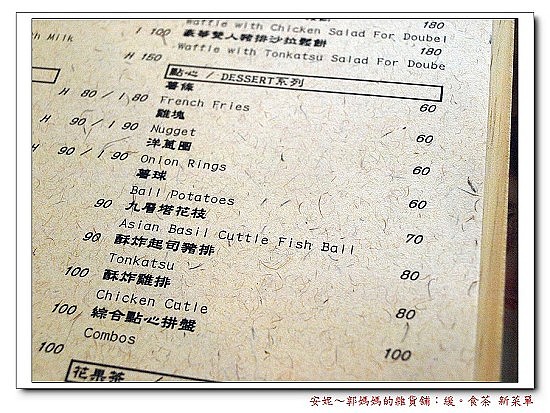 Waffle with Chicken Salad For Doubel
180
豪華雙人豬排沙拉鬆餅
180
Waffle with Tonkatsu Salad For Doube
點心 / DESSERT系列
薯條
60
French Fries
雞塊
60
Nugget
洋蔥圈
60
Onion Rings
薯球
60
Ball Potatoes
九層塔花枝
70
Asian Basil Cuttle Fish Ball
酥炸起司豬排
80
Tonkatsu
酥炸雞排
80
Chicken Catle
綜合點心拼盤
100
Combos
ch Milk
I 100
H 150
H 80 / I 80
H 90 / I 90
90 / I 90
90
90
100
100
100
花果茶
安妮～郭媽媽的雜貨舖：緩。食茶 新菜單